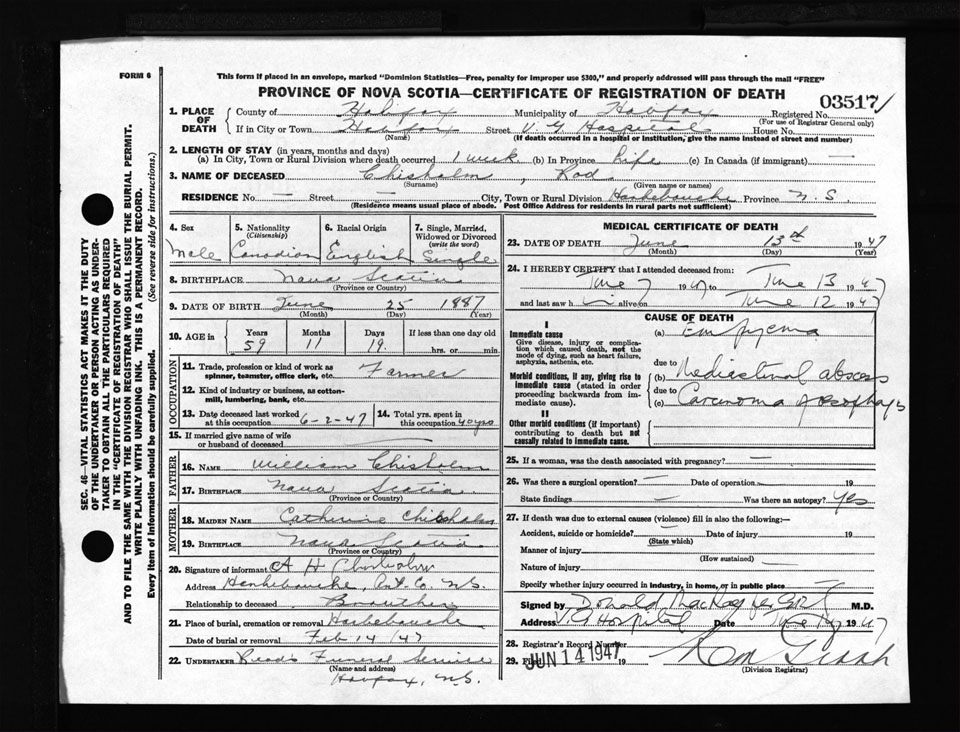 FORM 6
This form if placed in an envelope, marked "Dominion Statistics—Free, penalty for improper use $300," and properly addressed will pass through the mail "FREE"
PROVINCE OF NOVA SCOTIA—CERTIFICATE OF REGISTRATION OF DEATH
03517
1. PLACE OF DEATH
County of Halifax Municipality of Halifax Registered No.
(For use of Registrar General only)
If in City or Town Halifax Street V G Hospital House No.
(Name) (If death occurred in a hospital or institution, give the name instead of street and number)
2. LENGTH OF STAY (in years, months and days)
(a) In City, Town or Rural Division where death occurred 1 week (b) In Province Life (c) In Canada (if immigrant) —
3. NAME OF DECEASED Chisholm, Rod
(Surname) (Given name or names)
RESIDENCE No. — Street — City, Town or Rural Division Province N.S.
(Residence means usual place of abode. Post Office Address for residents in rural parts not sufficient)
4. Sex Male
5. Nationality (Citizenship) Canadian
6. Racial Origin English
7. Single, Married, Widowed or Divorced (write the word) Single
8. BIRTHPLACE Nova Scotia
(Province or Country)
9. DATE OF BIRTH June 25 1887
(Month) (Day) (Year)
10. AGE in Years Months Days If less than one day old
59 11 19 hrs. or min.
OCCUPATION
11. Trade, profession or kind of work as spinner, teamster, office clerk, etc. Farmer
12. Kind of industry or business, as cotton-mill, lumbering, bank, etc.
13. Date deceased last worked at this occupation 6-2-47
14. Total yrs. spent in this occupation 40 yrs
15. If married give name of wife or husband of deceased —
FATHER
16. NAME William Chisholm
17. BIRTHPLACE Nova Scotia
(Province or Country)
MOTHER
18. MAIDEN NAME Catherine Chisholm
19. BIRTHPLACE Nova Scotia
(Province or Country)
20. Signature of informant A H Chisholm
Address Ant. Co. N.S.
Relationship to deceased Brouther
21. Place of burial, cremation or removal
Date of burial or removal Feb 14/47
22. UNDERTAKER Funeral Service
(Name and address)
Halifax, N.S.
MEDICAL CERTIFICATE OF DEATH
23. DATE OF DEATH June 13th 1947
(Month) (Day) (Year)
24. I HEREBY CERTIFY that I attended deceased from:
June 7 1947 to June 13 1947
and last saw h i alive on June 12 1947
CAUSE OF DEATH
I
Immediate cause
Give disease, injury or complication which caused death, not the mode of dying, such as heart failure, asphyxia, asthenia, etc.
(a) Empyema
due to
Morbid conditions, if any, giving rise to immediate cause (stated in order proceeding backwards from immediate cause).
(b) Mediastinal abscess
due to
(c) Carcinoma of oesophagus
II
Other morbid conditions (if important) contributing to death but not causally related to immediate cause.
25. If a woman, was the death associated with pregnancy? —
26. Was there a surgical operation? — Date of operation 19
State findings — Was there an autopsy? Yes
27. If death was due to external causes (violence) fill in also the following:—
Accident, suicide or homicide? — Date of injury 19
(State which)
Manner of injury
(How sustained)
Nature of injury —
Specify whether injury occurred in industry, in home, or in public place —
Signed by Donald M.D.
Address V.G Hospital Date June 1947
28. Registrar's Record Number
29. JUN 14 1947 19
(Division Registrar)
SEC. 46—VITAL STATISTICS ACT MAKES IT THE DUTY
OF THE UNDERTAKER OR PERSON ACTING AS UNDERTAKER TO OBTAIN ALL THE PARTICULARS REQUIRED
IN THE "CERTIFICATE OF REGISTRATION OF DEATH"
AND TO FILE THE SAME WITH THE DIVISION REGISTRAR WHO SHALL ISSUE THE BURIAL PERMIT.
WRITE PLAINLY WITH UNFADING INK. THIS IS A PERMANENT RECORD.
Every item of information should be carefully supplied. (See reverse side for instructions.)